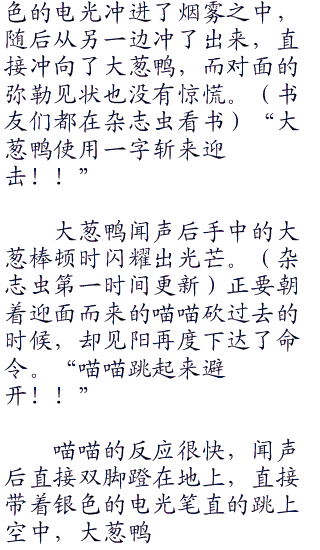 色的电光冲进了烟雾之中，
随后从另一边冲了出来，直
接冲向了大葱鸭，而对面的
弥勒见状也没有惊慌。（书
友们都在杂志虫看书）“大
葱鸭使用一字斩来迎
击！！”
大葱鸭闻声后手中的大
葱棒顿时闪耀出光芒。（杂
志虫第一时间更新）正要朝
着迎面而来的喵喵砍过去的
时候，却见阳再度下达了命
令。“喵喵跳起来避
开！！”
喵喵的反应很快，闻声
后直接双脚蹬在地上，直接
带着银色的电光笔直的跳上
空中，大葱鸭